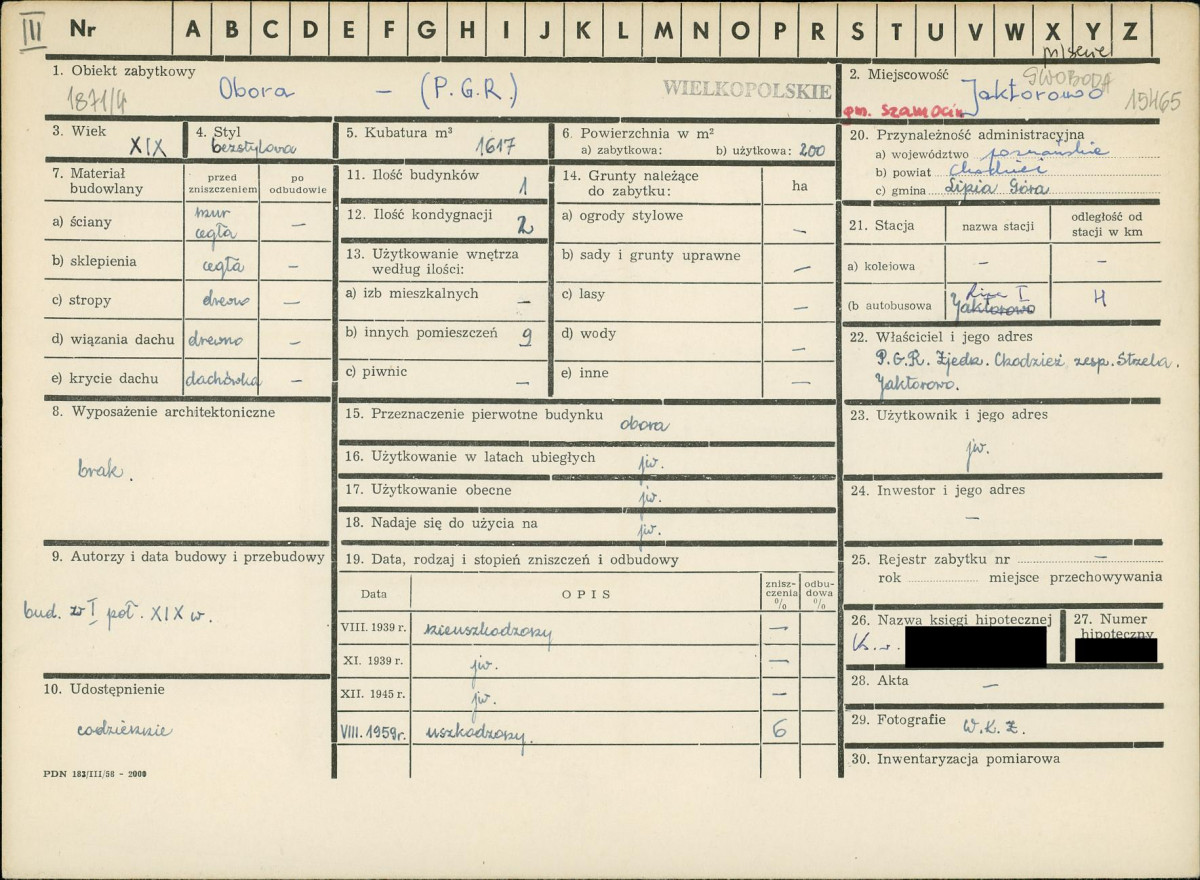 III Nr A B C D E F G H I J K L M N O P R S T U V W X Y Z
1. Obiekt zabytkowy
1871/4
Obora – (P.G.R.)
WIELKOPOLSKIE
2. Miejscowość
SWOBODA
Jaktorowo
15465
gm. Szamocin
3. Wiek
XIX
4. Styl
bezstylowa
5. Kubatura m³
1617
6. Powierzchnia w m²
a) zabytkowa: b) użytkowa: 200
7. Materiał budowlany
przed zniszczeniem
po odbudowie
a) ściany
mur cegła –
b) sklepienia cegła –
c) stropy drewno –
d) wiązania dachu drewno –
e) krycie dachu dachówka –
8. Wyposażenie architektoniczne
brak.
9. Autorzy i data budowy i przebudowy
bud. w I poł. XIX w.
10. Udostępnienie
codziennie
PDN 183/III/58 – 2000
11. Ilość budynków 1
12. Ilość kondygnacji 2
13. Użytkowanie wnętrza
według ilości:
a) izb mieszkalnych –
b) innych pomieszczeń 9
c) piwnic –
14. Grunty należące
do zabytku:
ha
a) ogrody stylowe –
b) sady i grunty uprawne –
c) lasy –
d) wody –
e) inne –
15. Przeznaczenie pierwotne budynku obora
16. Użytkowanie w latach ubiegłych jw.
17. Użytkowanie obecne jw.
18. Nadaje się do użycia na jw.
19. Data, rodzaj i stopień zniszczeń i odbudowy
Data OPIS znisz-czenia % odbu-dowa %
VIII. 1939 r. nieuszkodzony –
XI. 1939 r. jw. –
XII. 1945 r. jw. –
VIII. 1959 r. uszkodzony. 6
20. Przynależność administracyjna
a) województwo poznańskie
b) powiat Chodzież
c) gmina Lipia Góra
21. Stacja nazwa stacji odległość od stacji w km
a) kolejowa – –
(b autobusowa Jaktorowo 4
22. Właściciel i jego adres
P.G.R. Zjedn. Chodzież, zesp. Strzela.
Jaktorowo.
23. Użytkownik i jego adres
jw.
24. Inwestor i jego adres
–
25. Rejestr zabytku nr –
rok miejsce przechowywania
26. Nazwa księgi hipotecznej
K.w.
27. Numer
hipoteczny
28. Akta –
29. Fotografie W.K.Z.
30. Inwentaryzacja pomiarowa